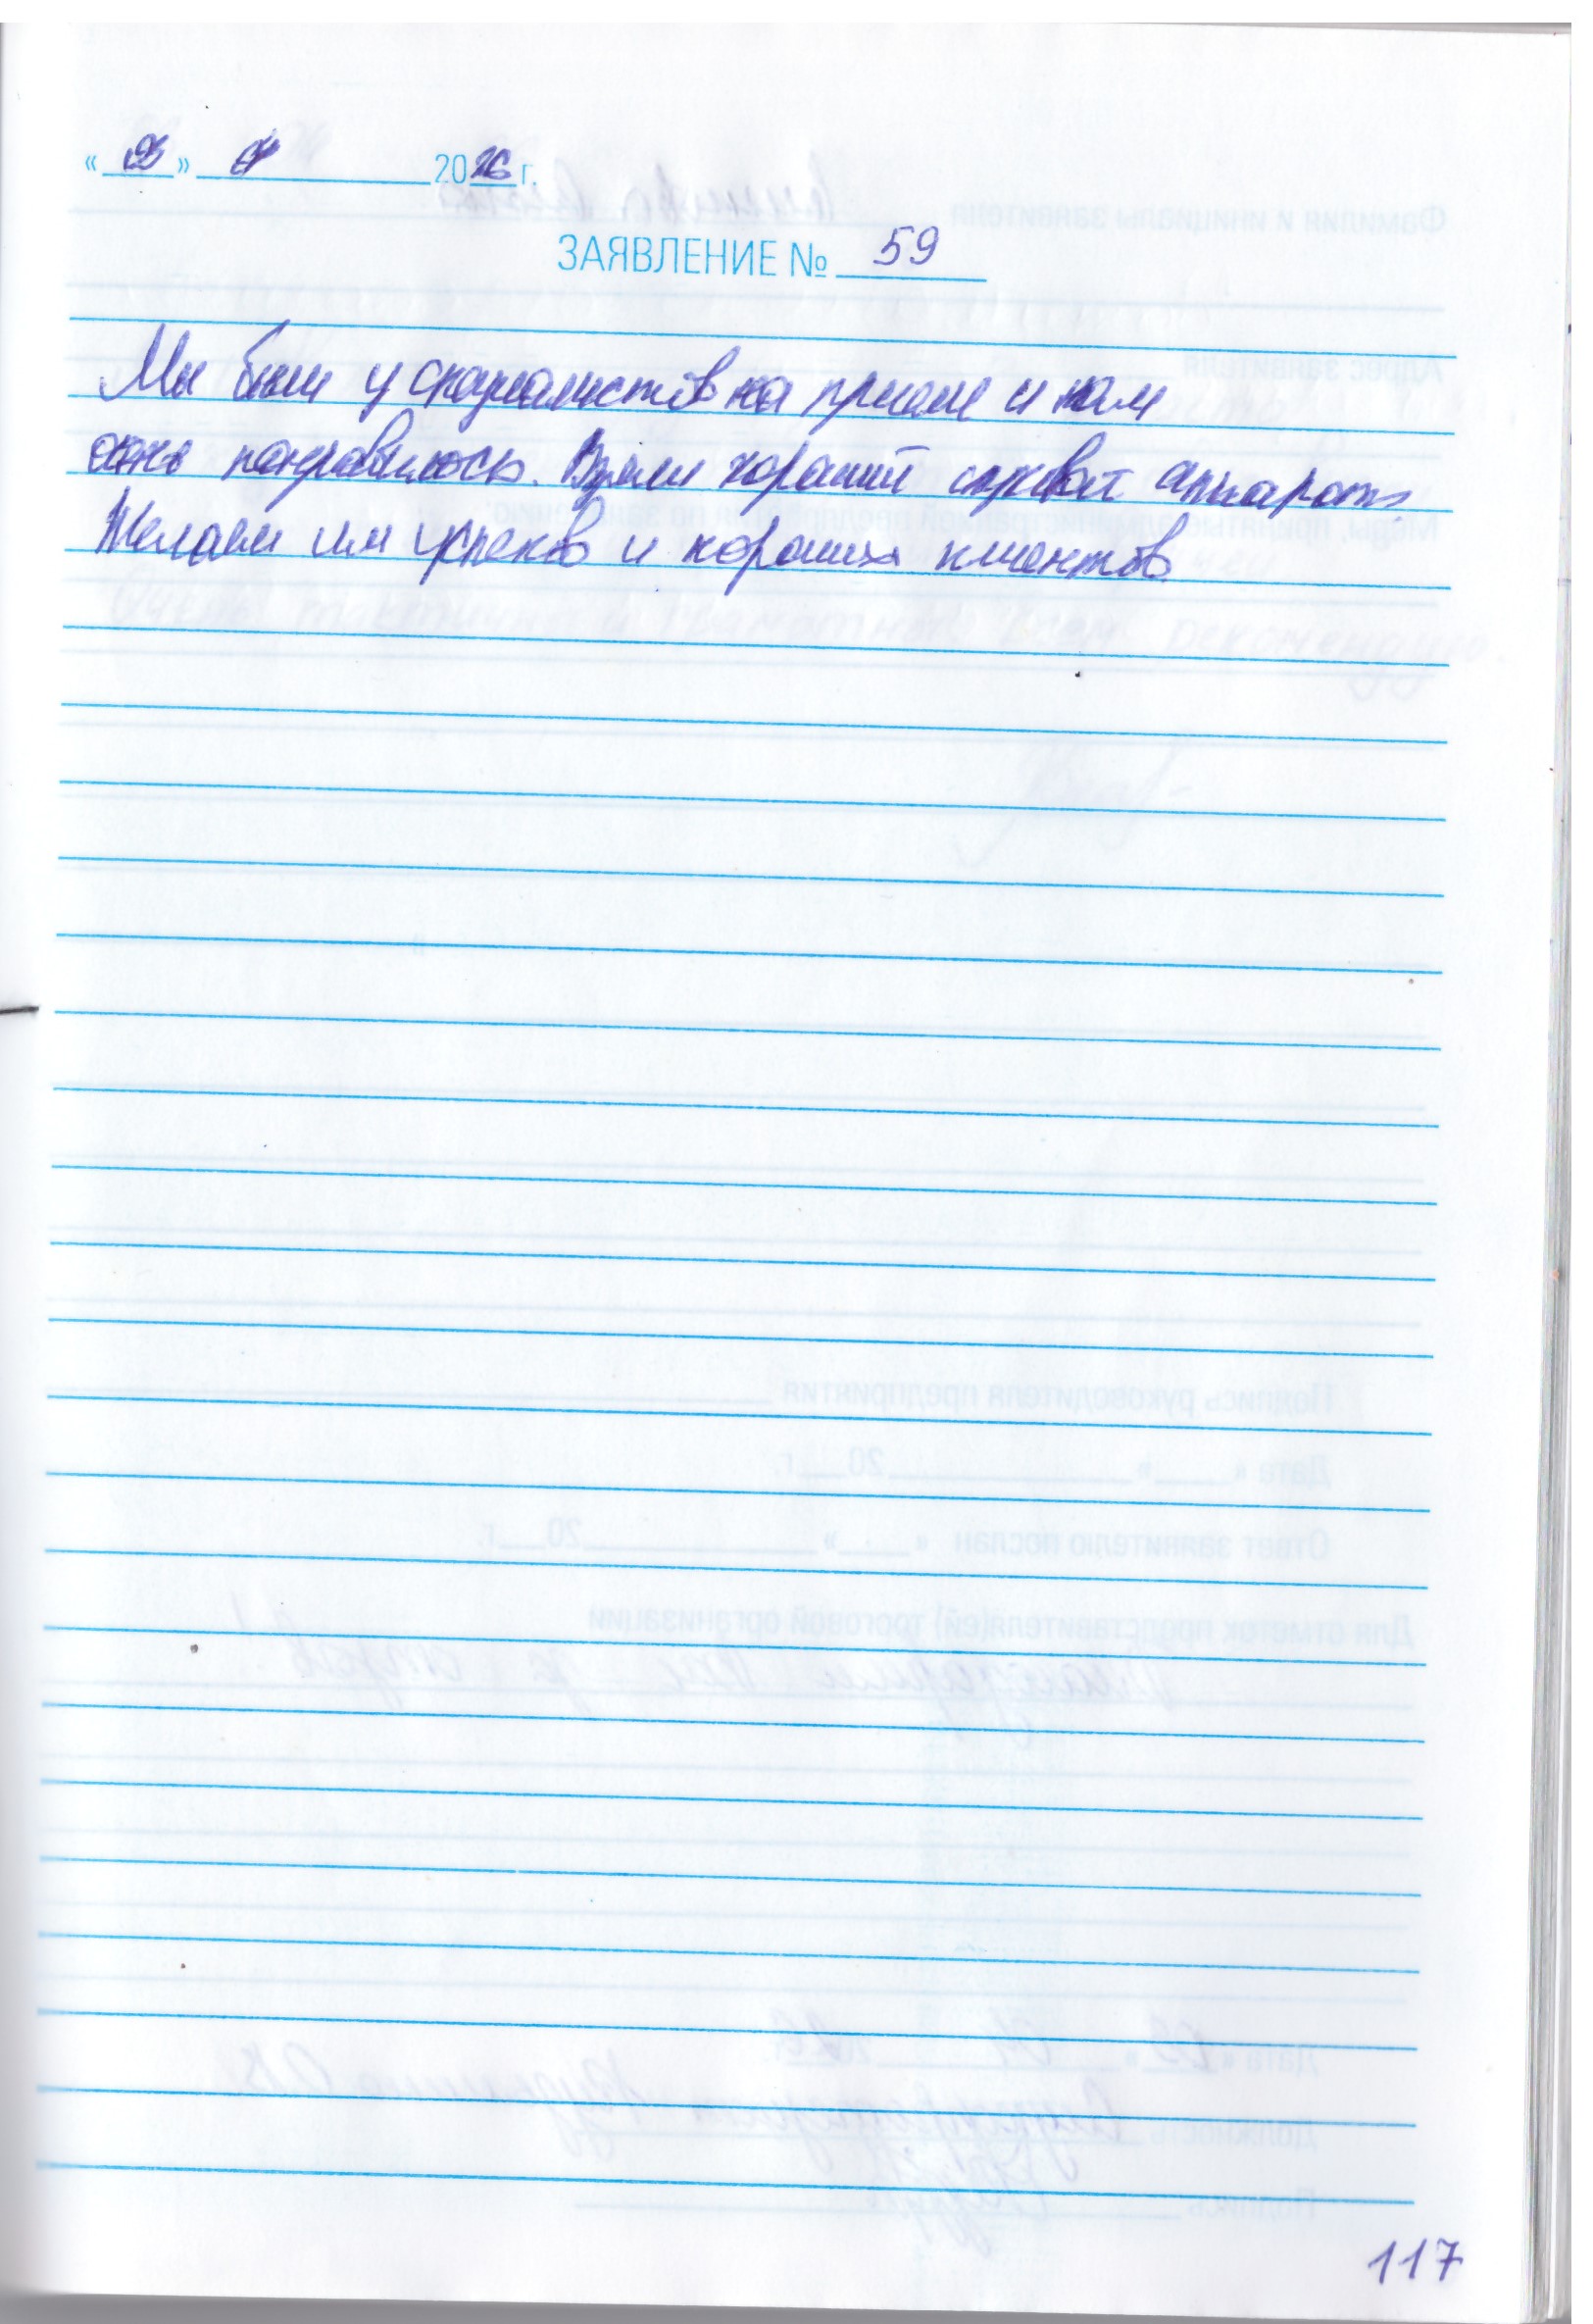 « 23 » 01 2026 г.
ЗАЯВЛЕНИЕ № 59
Мы были у специалистов на приеме и нам
очень понравилось. Взяли хороший слуховой аппарат
Желаем им успехов и хороших клиентов
117